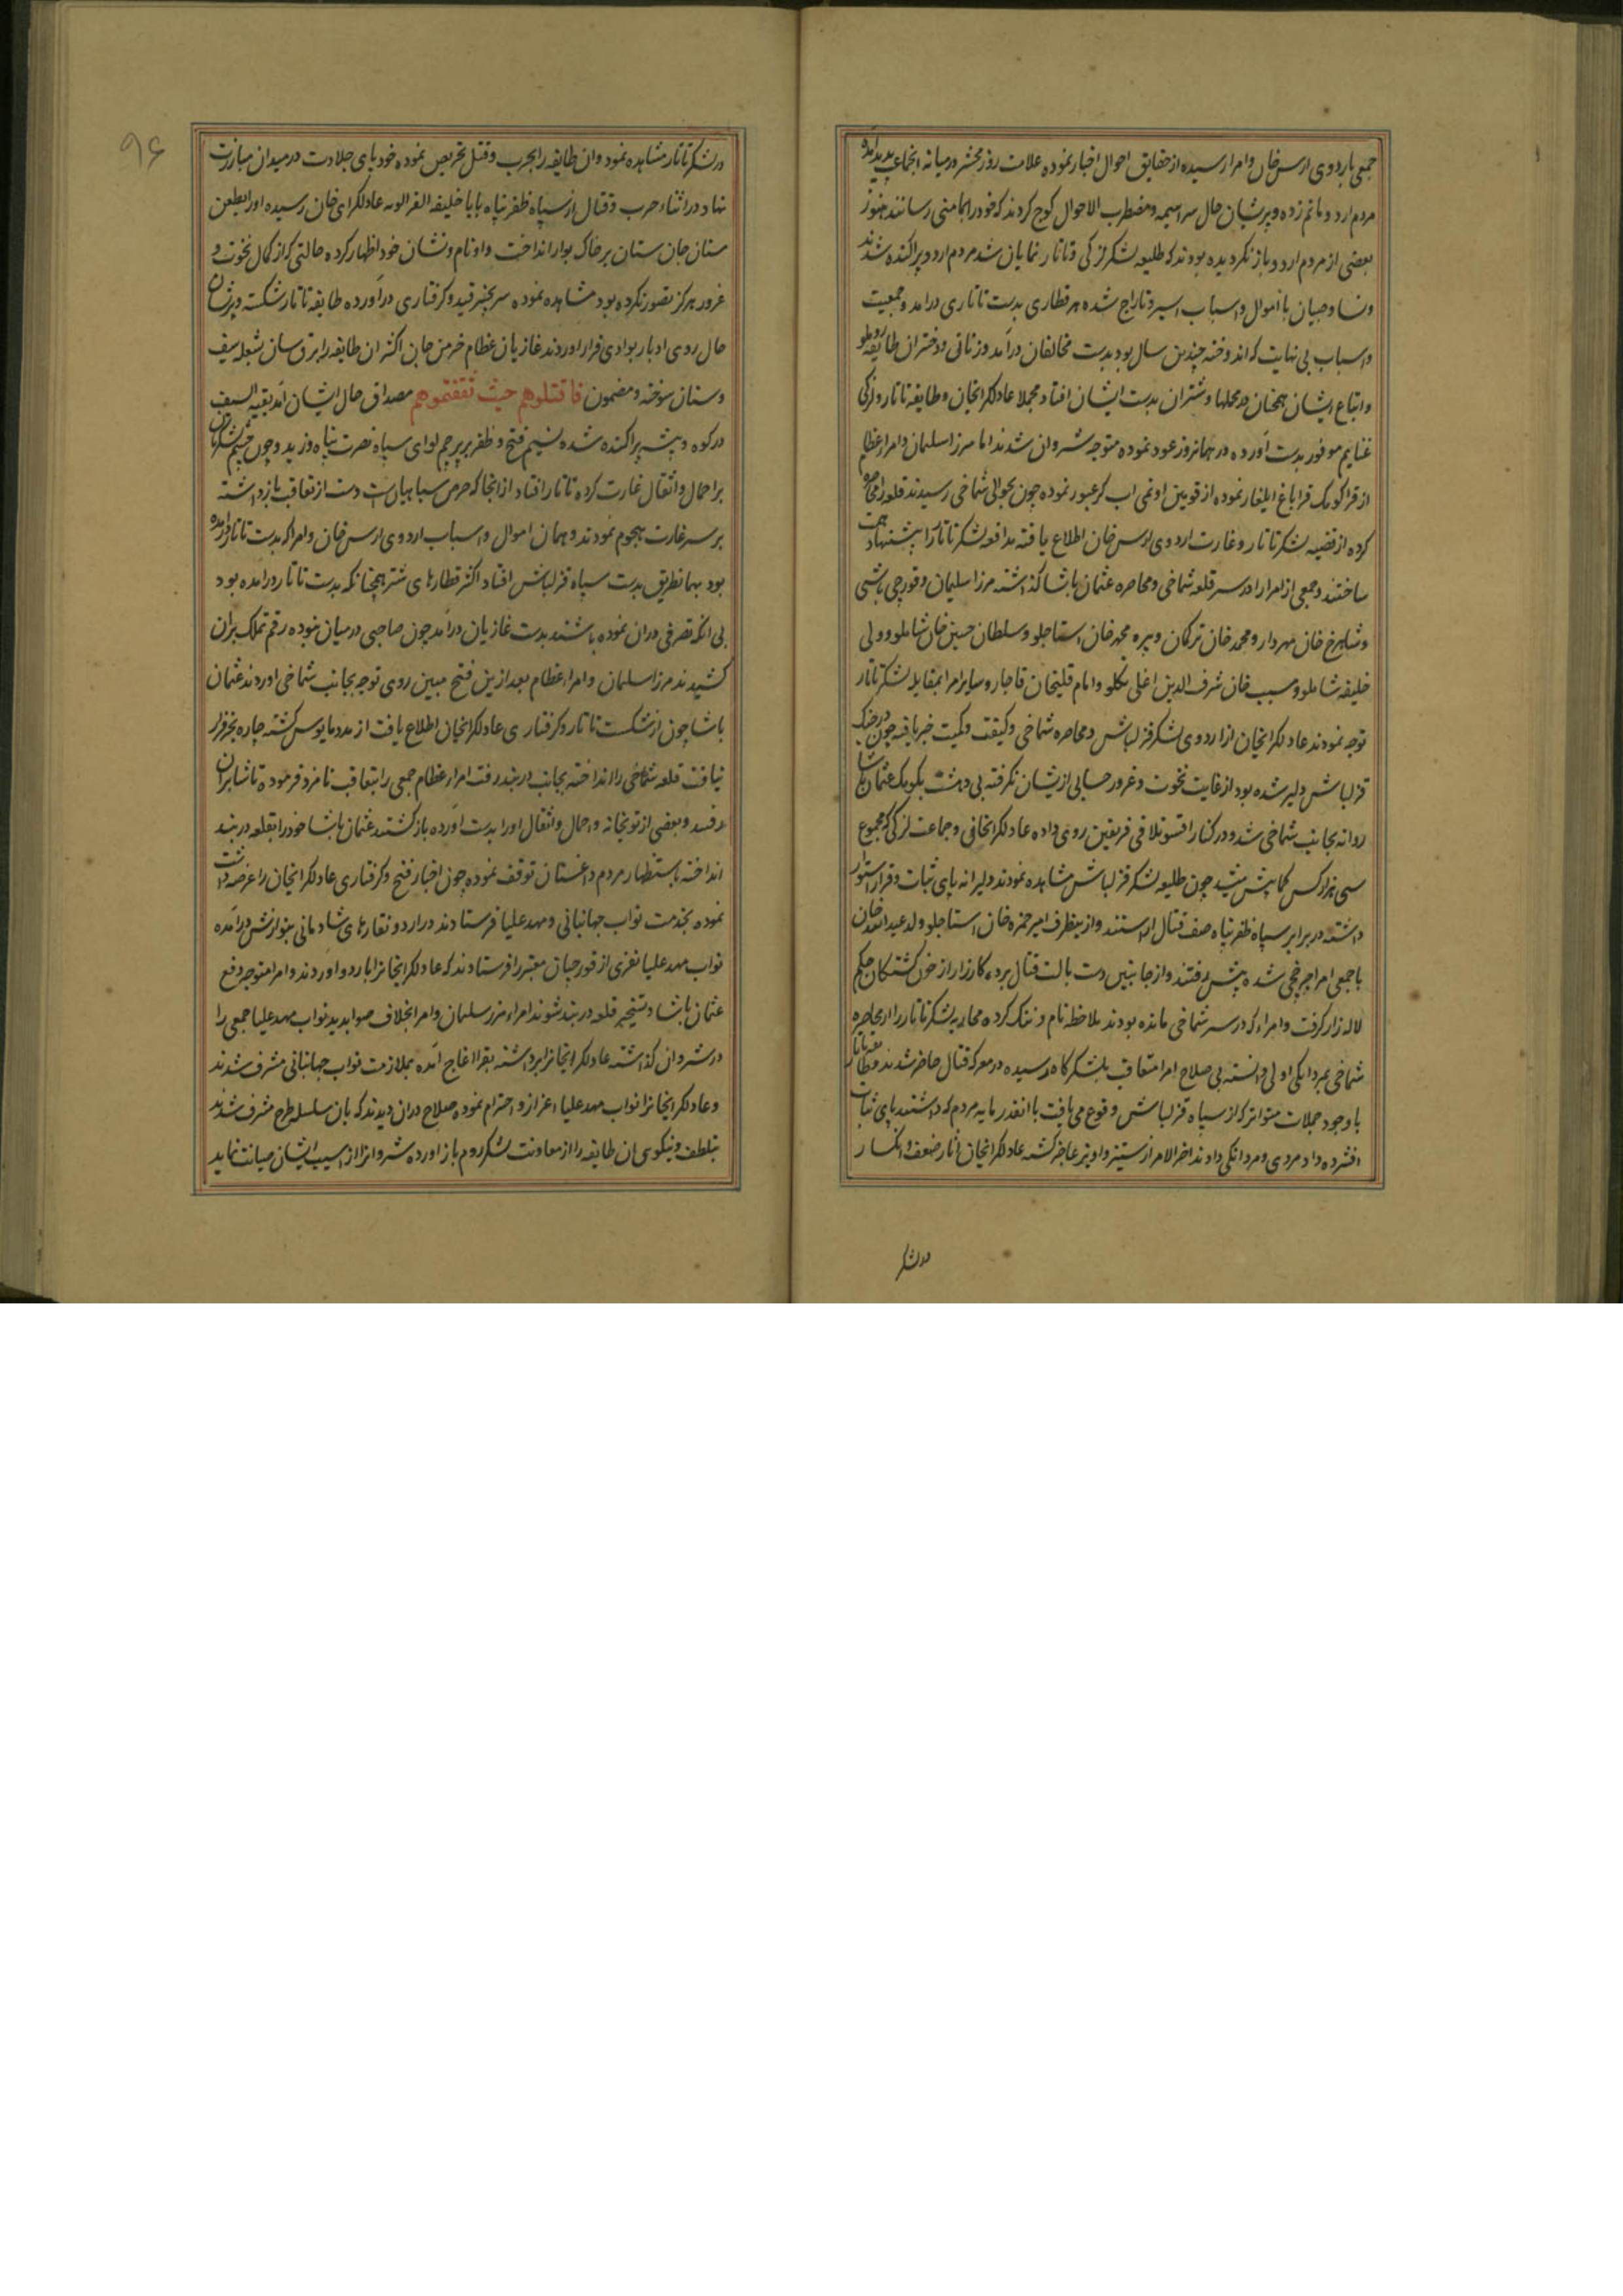 جمعی باردوی ارس خان و امرا رسیده از حقایق احوال اخبار نموده علامت روز محشر در میانه انجماعت پدید آمده
مردم اردو ماتم زده و پریشان حال سراسیمه و مضطرب الاحوال کوچ کردند که خود را بمامنی رسانند هنوز
بعضی از مردم اردو باز نکردیده بودند که طلیعه لشکر لزکی و تاتار نمایان شد مردم اردو پراکنده شدند
و نسا و صبیان با اموال و اسباب اسیر و تاراج شده هر قطاری بدست تاتاری درامد و جمعیت
و اسباب بی نهایت که اندوخته چندین سال بود بدست مخالفان درآمد و زنانی و دختران طایفه روملو
و اتباع ایشان همچنان در محلها و شتران بدست ایشان افتاد مجملا عادلکرایخان و طایفه تاتار و لزکی
غنایم موفور بدست آورده در همانروز عود نموده متوجه شروان شدند اما مرزا سلمان و امراء عظام
از قراکوبک قراباغ ایلغار نموده از قویین اولمی اب کر عبور نموده چون بحوالی شماخی رسیدند قلعه را محاصره
کرده از قضیه لشکر تاتار و غارت اردوی ارس خان اطلاع یافته مدافعه لشکر تاتار را پیشنهاد همت
ساختند و جمعی از امرا را در سر قلعه شماخی و محاصره عثمان پاشا کذاشته مرزا سلیمان و قورچی باشی
و شاهرخ خان مهردار و محمد خان ترکمان و پیره محمد خان استاجلو و سلطان حسین خان شاملو و ولی
خلیفه شاملو و مسیب خان شرف الدین اغلی تکلو و امام قلیخان قاجار و سایر امرا بمقابله لشکر تاتار
توجه نمودند عادلکرایخان از اردوی لشکر قزلباش و محاصره شماخی و کیفیت و کمیت خبر یافته چون در جنک
قزلباش دلیر شده بود از غایت نخوت و غرور حسابی از یشان نکرفته بی دهشت بکومک عثمان پاشا
روانه بجانب شماخی شد و در کنار اقسو تلاقی فریقین روی داده عادلکرایخانی و جماعت لزکی که مجموع
سی هزار کس کمابیش میشد چون طلیعه لشکر قزلباش مشاهده نمودند دلیرانه پای ثبات و قرار استوار
داشته در برابر سپاه ظفر پناه صف قتال اراستند و از ینطرف امیر حمزه خان استاجلو ولد عبدالله خان
با جمعی امرا چرخچی شده پیش رفتند و از جانبین دست بالت قتال برده کارزار از خون کشتکان حکم
لاله زار کرفت و امراء که در سر شماخی مانده بودند ملاحظه نام و ننک کرده محاربه لشکر تاتار را از محاصره
شماخی بمردانکی اولی دانسته بی صلاح امرا متعاقب بلشکرکاه رسیده در معرکه قتال حاضر شدند و طایفه تاتار
با وجود حملات متواتر که از سپاه قزلباش وقوع می یافت با انقدر مایه مردم که داشتند پای ثبات
افشرده داد مردی و مردانکی دادند اخر الامر از ستیز و اویز عاجز کشته عادلکرایخان اثار ضعف و انکسار
در لشکر
۹۶
در لشکر تاتار مشاهده نمود و ان طایفه را بحرب و قتل تحریص نموده خود پای جلادت در میدان مبارزت
نهاد در اثناء حرب و قتال از سپاه ظفر پناه بابا خلیفه القرالوبه عادلکرای خان رسیده او را بطعن
سنان جان ستان بر خاک بوار انداخت و او نام و نشان خود اظهار کرده حالتی که از کمال نخوت و
غرور هرکز تصور نکرده بود مشاهده نموده سر بجنبر قید و کرفتاری درآورده طایفه تاتار شکسته و پریشان
حال روی ادبار بوادی فرار اوردند غازیان عظام خرمن جان اکثر ان طایفه را برق سان بشعله سیف
و سنان سوخته و مضمون فاقتلوهم حیث ثقفتموهم مصداق حال ایشان آمد بقیه السیف
در کوه و بیشه پراکنده شده نسیم فتح و ظفر بر پرچم لوای سپاه نصرت پناه وزید و چون چشم لشکریان
بر احمال و اثقال غارت کرده تاتار افتاد از انجا که حرص سپاهیان است دست از تعاقب بازداشته
بر سر غارت هجوم نمودند و همان اموال و اسباب اردوی ارس خان و امرا که بدست تاتار درامده
بود بهمانطریق بدست سپاه قزلباش افتاد اکثر قطارهای شتر همچنانکه بدست تاتار درامده بود
بی انکه تصرفی دران نموده باشند بدست غازیان درآمد چون صاحبی در میان نبوده رقم تملک بران
کشیدند مرزا سلمان و امراء عظام بعد از ین فتح مبین روی توجه بجانب شماخی اوردند عثمان
پاشا چون از شکست تاتار و کرفتاری عادلکرایخان اطلاع یافت از مدد مایوس کشته چاره بجز فرار
نیافت قلعه شماخی را انداخته بجانب دربند رفت امراء عظام جمعی را بتعاقب نامزد فرموده تا شابران
رفتند و بعضی از توپخانه و احمال و اثقال او را بدست آورده بازکشتند عثمان پاشا خود را بقلعه دربند
انداخته باستظهار مردم داغستان توقف نموده چون اخبار فتح و کرفتاری عادلکرایخان را عرضه داشت
نموده بخدمت نواب جهانبانی و مهد علیا فرستادند در اردو نقارهای شادمانی بنوازش درآمده
نواب مهد علیا نفری از قورچیان معتبر را فرستادند که عادلکرایخانرا باردو اوردند و امرا متوجه دفع
عثمان پاشا و تسخیر قلعه دربند شوند امراء مرزا سلمان و امرا بخلاف صوابدید نواب مهد علیا جمعی را
در شروان کذاشته عادلکرایخانرا برداشته بقرااغاج آمده بملازمت نواب جهانبانی مشرف شدند
و عادلکرایخانرا نواب مهد علیا اعزاز و احترام نموده صلاح دران دیدند که بان سلسله طرح مشرف شدند
بتلطف و نیکوی ان طایفه را از معاونت لشکر روم باز آورده شروانرا از اسیب ایشان صیانت نماید